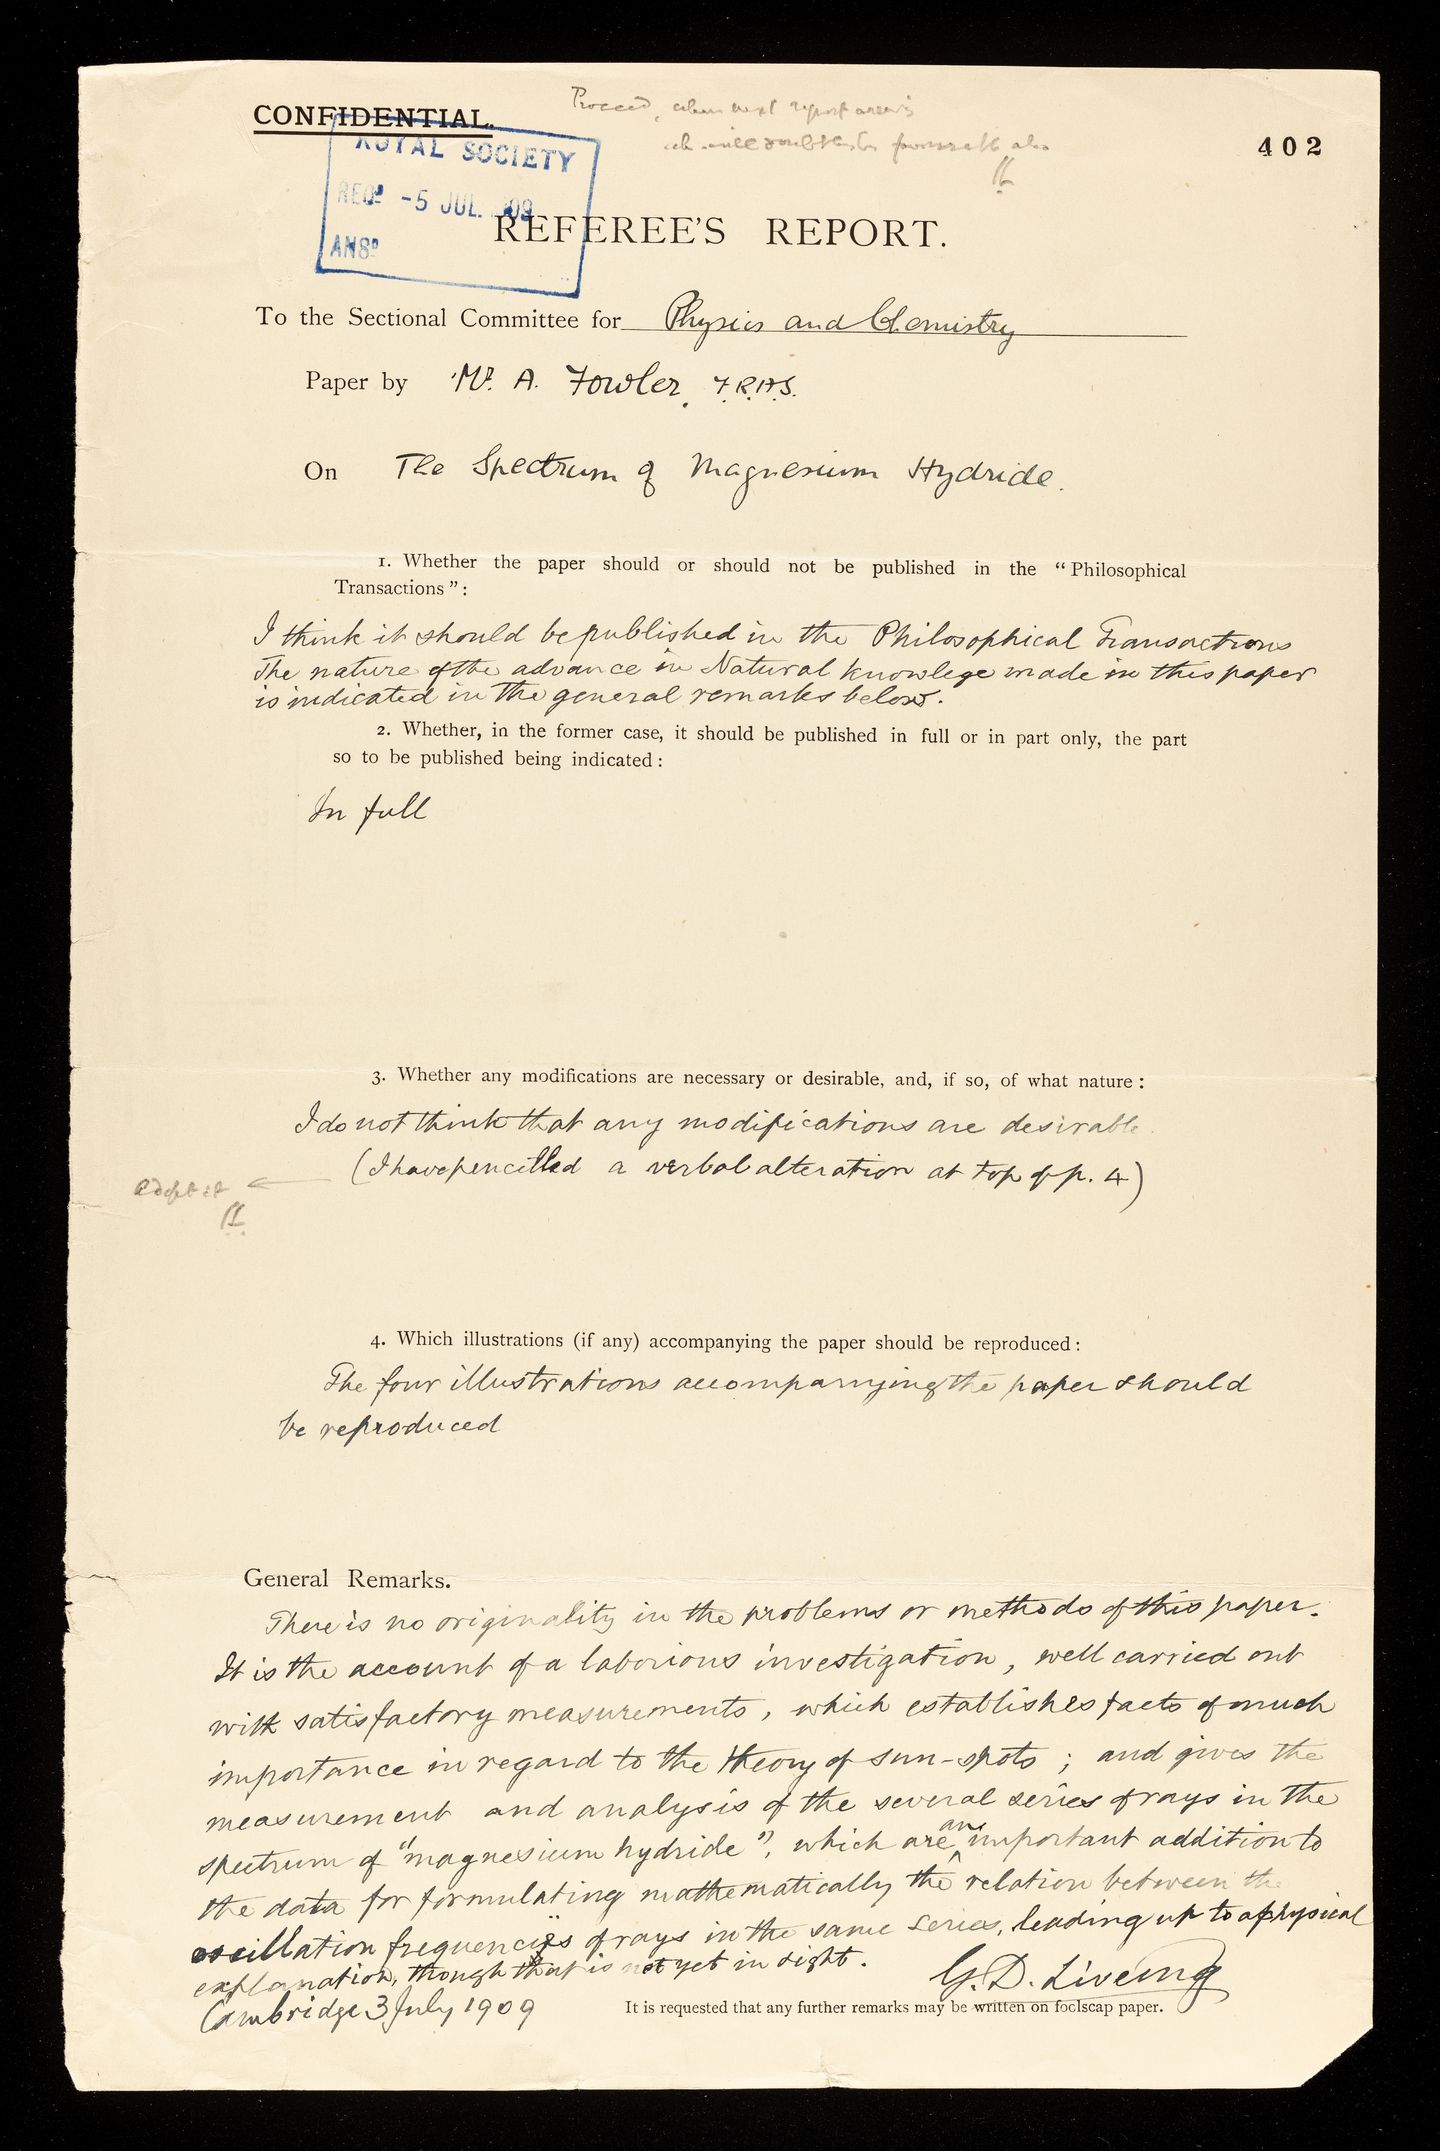 CONFIDENTIAL.
Proceed, when next report arrives
402
ROYAL SOCIETY
RECD -5 JUL. 09
ANSD
REFEREE'S REPORT.
To the Sectional Committee for Physics and Chemistry
Paper by Mr. A. Fowler, F.R.A.S.
On The Spectrum of Magnesium Hydride.
1. Whether the paper should or should not be published in the "Philosophical
Transactions":
I think it should be published in the Philosophical Transactions
The nature of the advance in Natural knowlege made in this paper
is indicated in the general remarks below.
2. Whether, in the former case, it should be published in full or in part only, the part
so to be published being indicated:
In full
3. Whether any modifications are necessary or desirable, and, if so, of what nature:
I do not think that any modifications are desirable.
(I have pencilled a verbal alteration at top of p. 4)
adopt it
4. Which illustrations (if any) accompanying the paper should be reproduced:
The four illustrations accompanying the paper should
be reproduced
General Remarks.
There is no originality in the problems or methods of this paper.
It is the account of a laborious investigation, well carried out
with satisfactory measurements, which establishes facts of much
importance in regard to the theory of sun-spots; and gives the
measurement and analysis of the several series of rays in the
spectrum of "magnesium hydride", which are an important addition to
the data for formulating mathematically the relation between the
oscillation frequencies of rays in the same series, leading up to a physical
explanation, though that is not yet in sight.
G. D. Liveing
Cambridge 3 July 1909
It is requested that any further remarks may be written on foolscap paper.